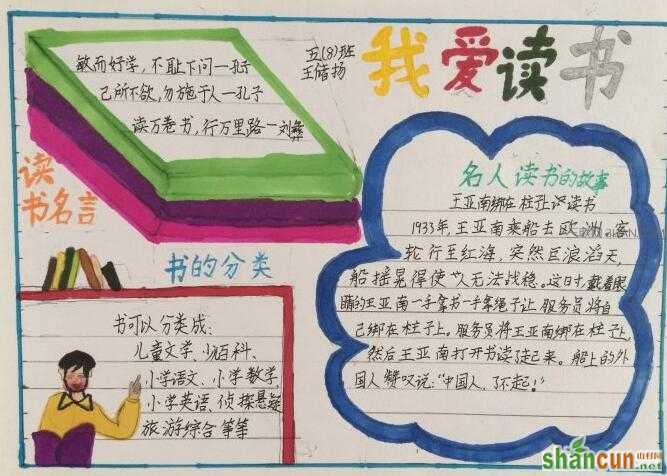 我爱读书
五(8)班
王储扬
敏而好学，不耻下问一孔子
己所不欲，勿施于人一孔子
读万卷书，行万里路一刘彝
读
书名言
书的分类
书可以分类成：
儿童文学、少百科、
小学语文、小学数学、
小学英语、侦探悬疑
旅游综合等等
名人读书的故事
王亚南绑在柱子上读书
1933年，王亚南乘船去欧洲。客
轮行至红海，突然巨浪滔天，
船摇晃得使人无法战稳。这时，戴着眼
睛的王亚南一手拿书一手拿绳子让服务员将自
己绑在柱子上。服务员将王亚南绑在柱子上，
然后王亚南打开书读起来。船上的外
国人赞叹说："中国人，了不起！"
shancun
山村网
.net